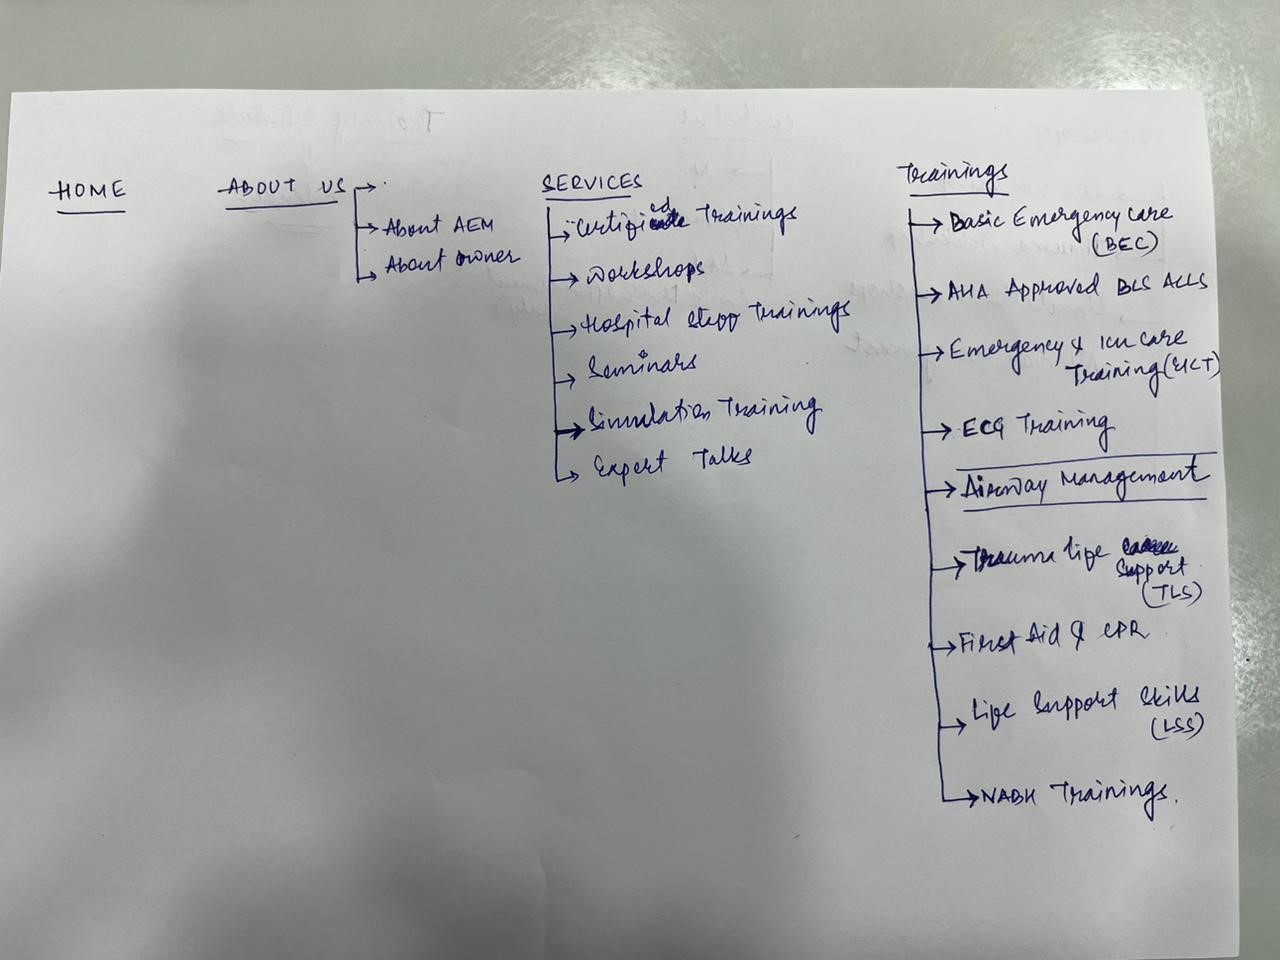 HOME
ABOUT US
About AEM
About owner
SERVICES
Certified Trainings
Workshops
Hospital Staff Trainings
Seminars
Simulation Training
Expert Talks
Trainings
Basic Emergency care
(BEC)
AHA Approved BLS ACLS
Emergency & ICU care
Training (EICT)
ECG Training
Airway Management
Trauma life
Support
(TLS)
First Aid & CPR
Life Support Skills
(LSS)
NABH Trainings.